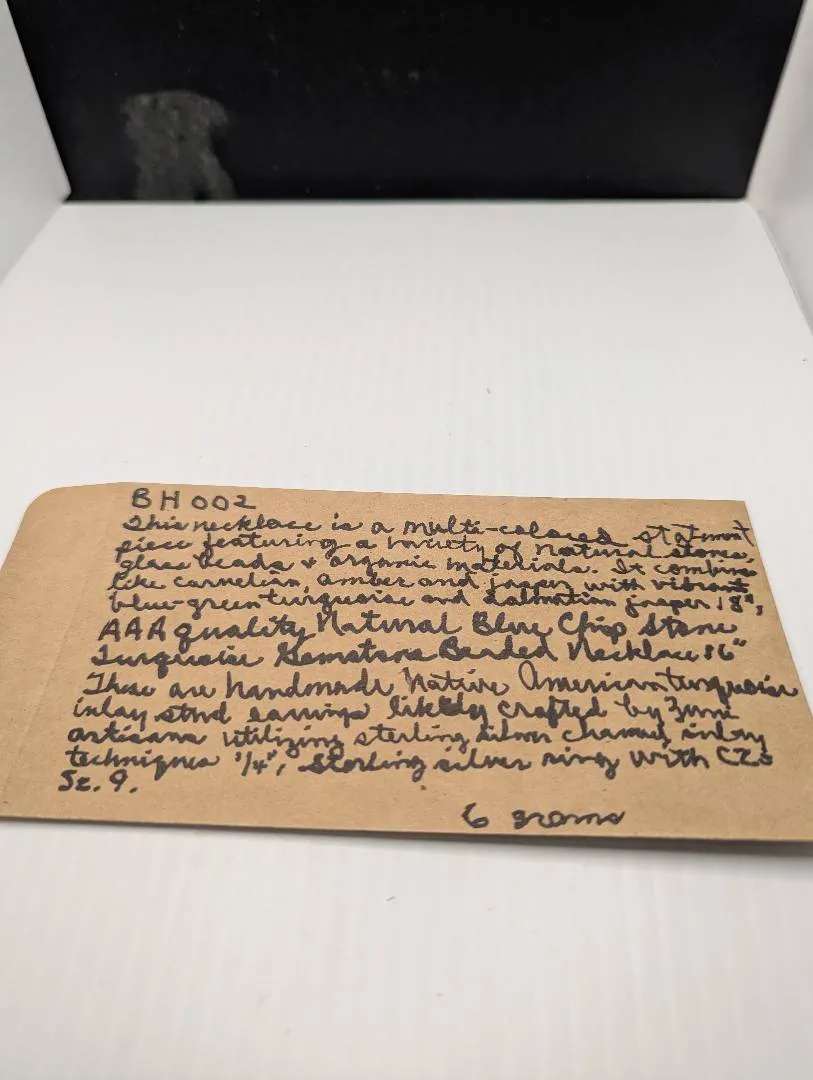 BH002
This necklace is a multi-colored statement
piece featuring a variety of natural stones,
glass beads & organic materials. It combines
like carnelian amber and jasper with vibrant
blue-green turquoise and dalmatian jasper 18",
AAA quality Natural Blue Chip Stone
Turquoise Gemstone Beaded Necklace 16"
These are handmade Native American turquoise
inlay stud earrings likely crafted by Zuni
artisans utilizing sterling silver channel inlay
techniques 1/4", Sterling silver ring with CZs
Sz. 9.
6 grams